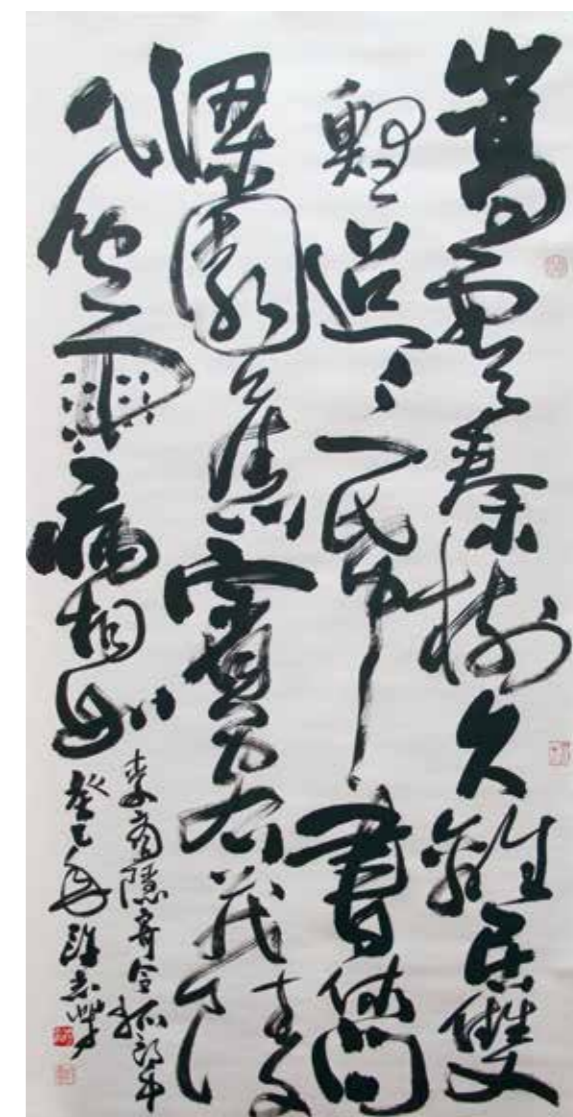 嵩雲秦樹久離居雙
鯉迢迢一帋書休問
梁園舊賓客茂陵
秋雨病相如
李商隱寄令狐郎中
癸巳年